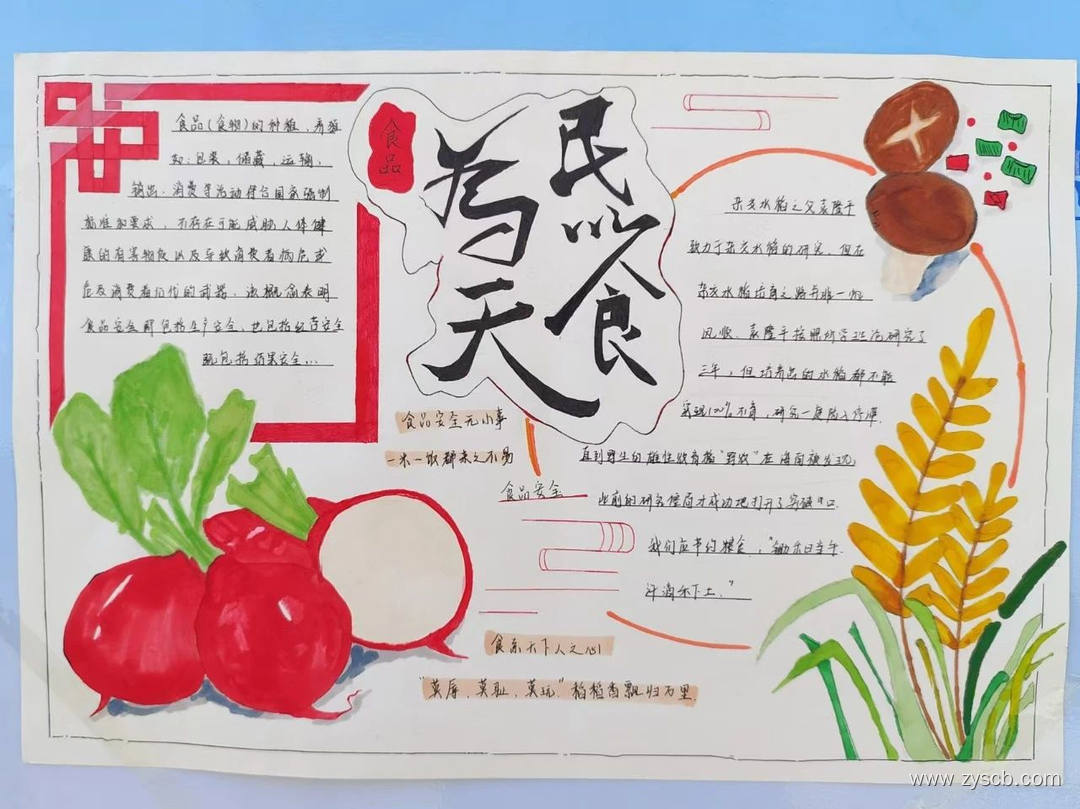 食品
民以食
为天
食品(食物)的种植、养殖
加工包装、储藏、运输、
销出、消费等活动符合国家强制
标准和要求，不存在可能威胁人体健
康的有害物质以及导致消费者病危或
危及消费者后代的
食品安全既包括生产安全，也包括经营安全
既包括结果安全...
食品安全无小事
一米一饭都来之不易
食品安全
杂交水稻之父袁隆平
致力于杂交水稻的研究，但在
杂交水稻培育之路并非一帆
风顺，袁隆平按照所学理论研究了
三年，但培养出的水稻都不能
实现100%不育，研究一度陷入停滞
直到野生的雄性败育稻"野败"在海南被发现
此前的研究僵局才成功地打开了突破口
我们应节约粮食，"锄禾日当午
汗滴禾下土。"
食系天下人之心
"莫厚、莫耻、莫玩"稻稻香飘归万里
www.zyscb.com